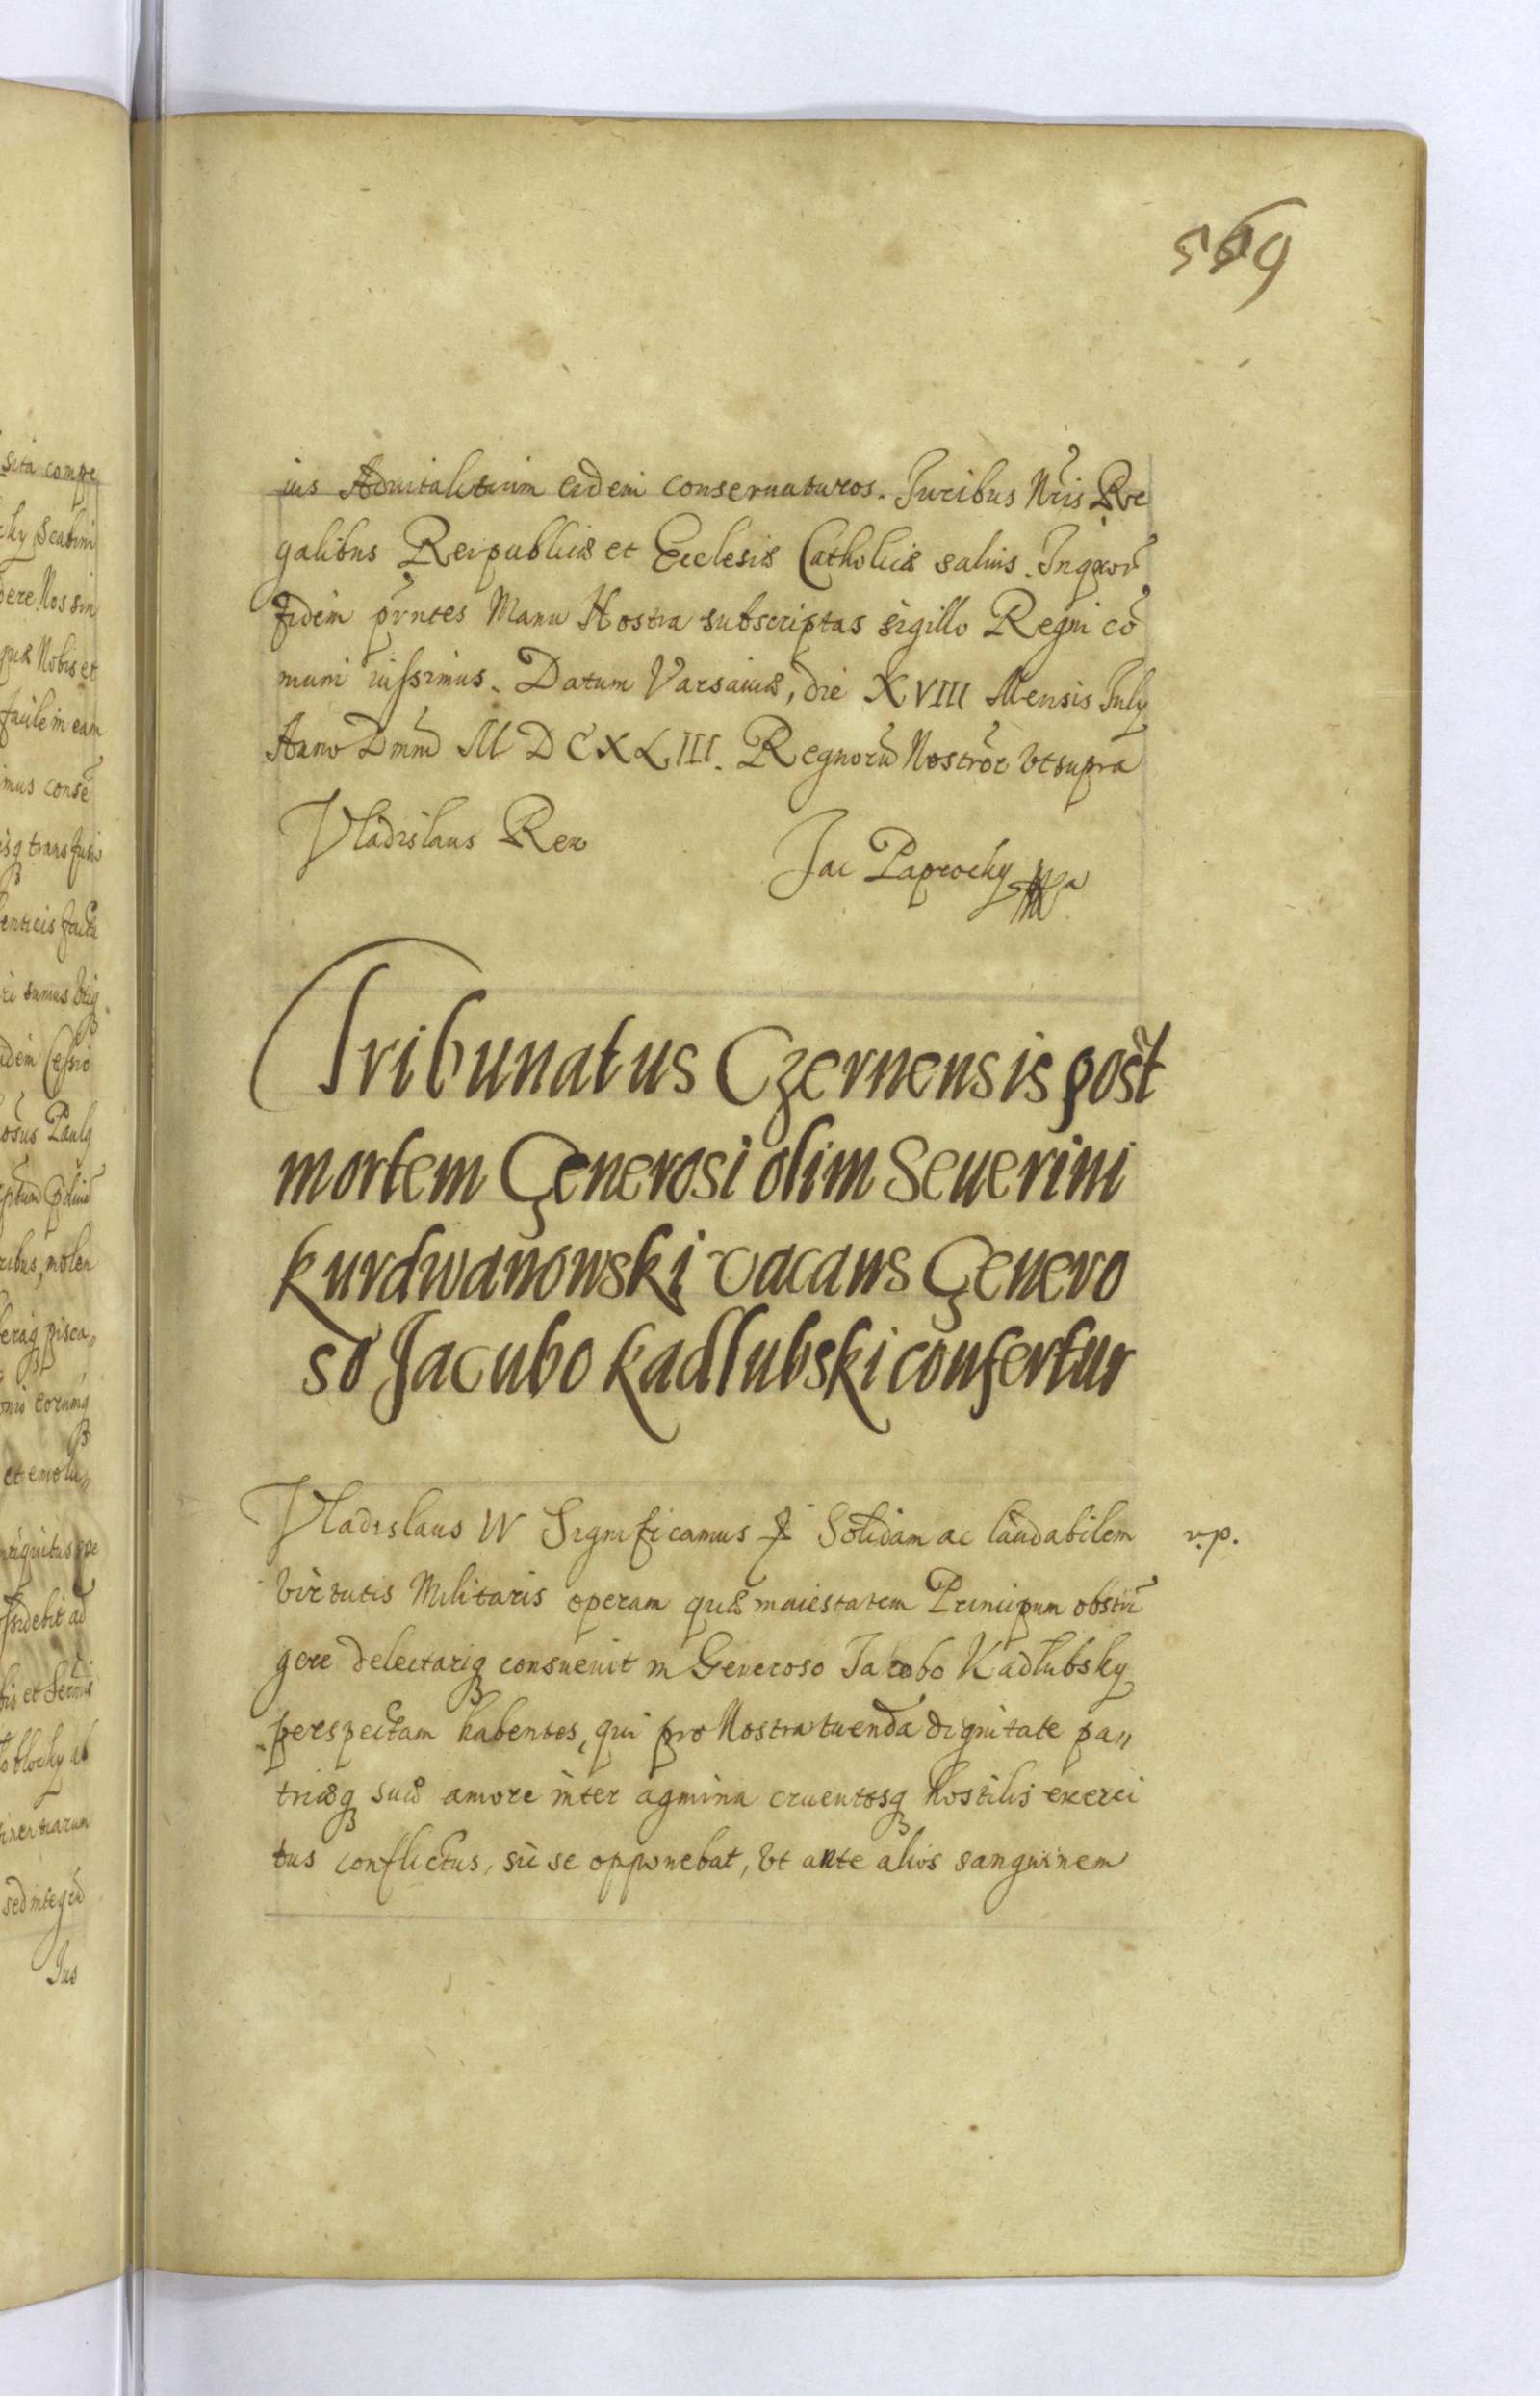 569
ius Aduitalitium eidem conseruaturos. Iuribus Nr̃is Re
galibus Reipublicæ et Ecclesiæ Catholicæ saluis. Inqxor̃
fidem pr̃ntes Manu Nostra subscriptas sigillo Regni cõ
muni iussimus. Datum Varsauiæ, die XVIII Mensis July
Anno Dmnĩ MDCXLIII. Regnorũ Nostror̃ vt supra
Vladislaus Rex Jac Paprocky
Tribunatus Czernensis post
mortem Generosi olim Seuerini
Kurdwanowski vacans Genero
so Jacubo Kadlubski confertur
Vladislaus IV Significamus Solidam ac laudabilem
v.p.
virtutis Militaris operam quæ maiestatem Principum obstrĩ
gere delectariq consueuit in Generoso Jacobo Kadlubsky
perspectam habentes, qui pro Nostra tuenda dignitate pa〃
triæq suæ amore inter agmina cruentosq hostilis exerci
tus conflictus, sic se opponebat, vt ante alios sanguinem
sita compe
cky Scabini
dere Nos sin
quæ Nobis et
facile in eam
imus consẽ
transfusio
enticis
ri sumus
idem Cessio
osus Paulq
ribus, molen
pisca〃
onio eorumq
et emolu〃
ntiquitus
ssidebit ad
bis et
blocky ab
tinentiarum
sed integrũ
Ius